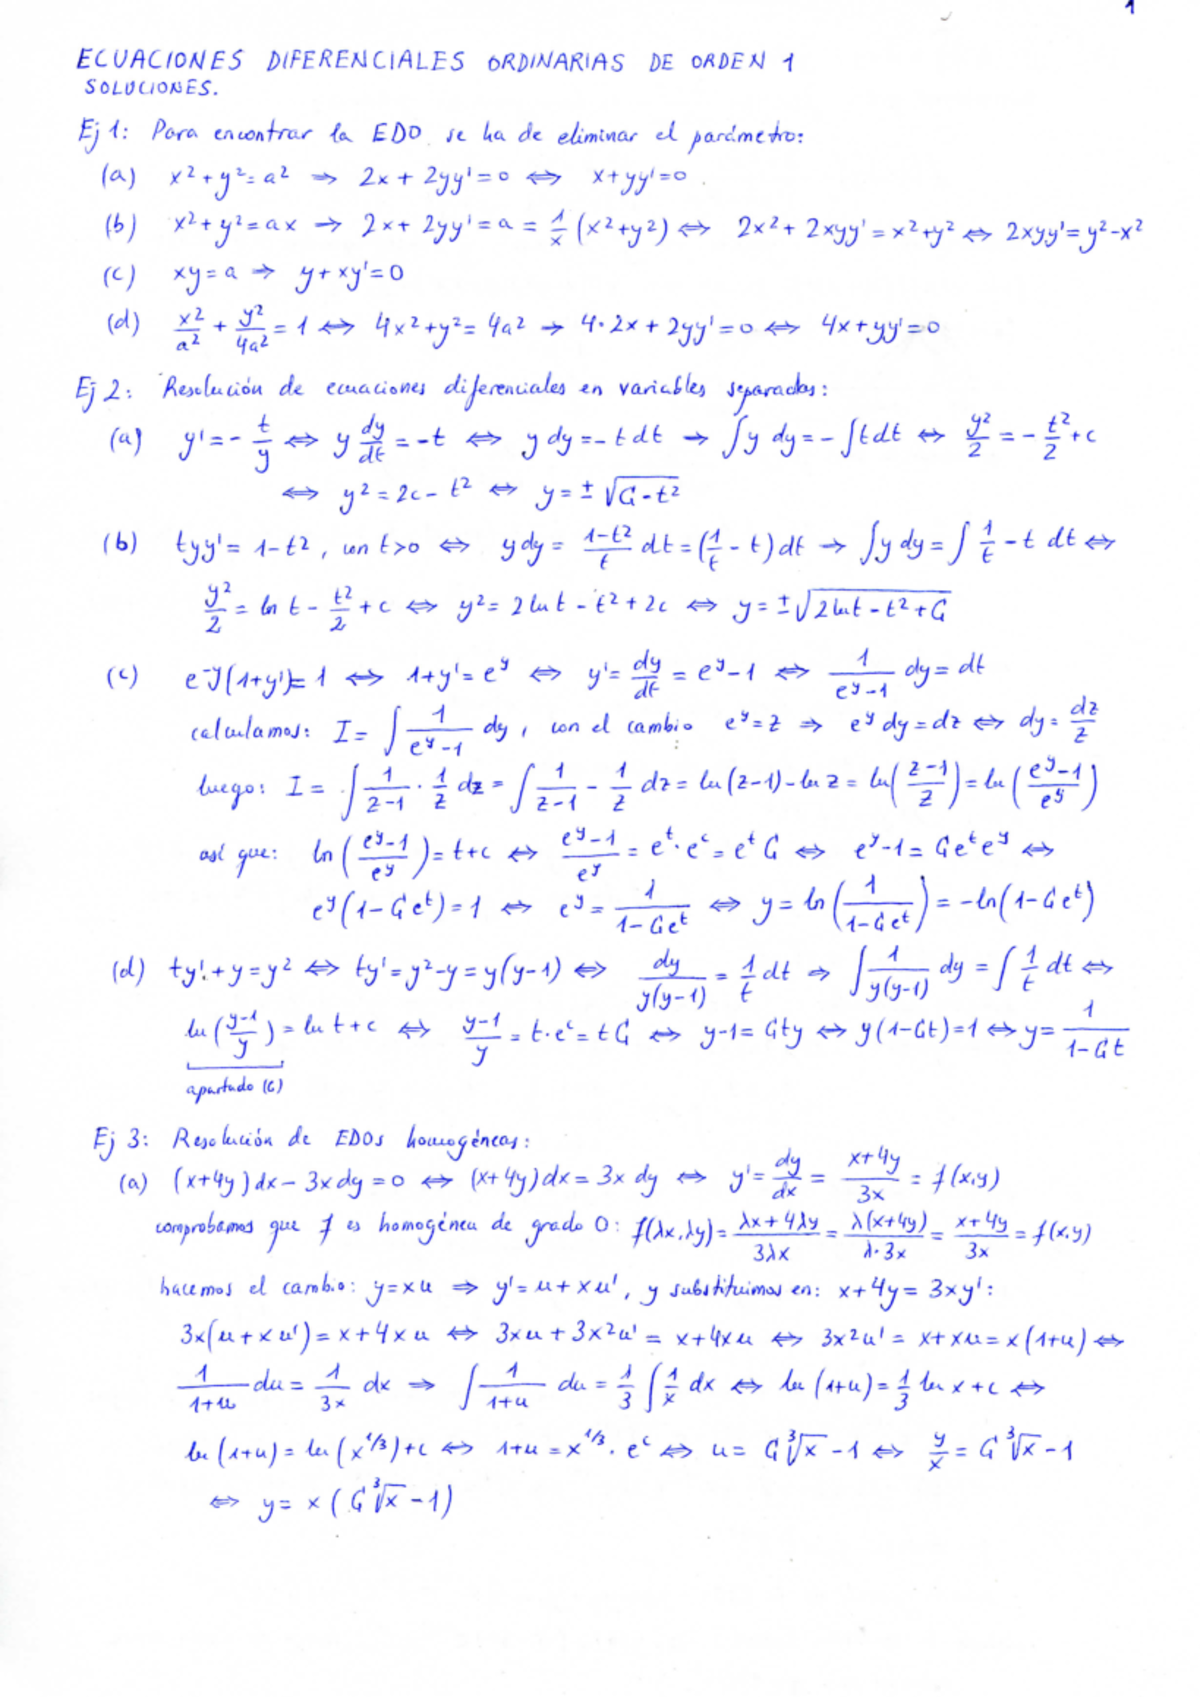 1
ECUACIONES DIFERENCIALES ORDINARIAS DE ORDEN 1
SOLUCIONES.
Ej 1: Para encontrar la EDO se ha de eliminar el parámetro:
(a) x²+y²=a² → 2x+2yy'=0 ⇔ x+yy'=0.
(b) x²+y²=ax → 2x+2yy'=a = 1/x (x²+y²) ⇔ 2x²+2xyy'=x²+y² ⇔ 2xyy'=y²-x²
(c) xy=a → y+xy'=0
(d) x²/a² + y²/4a² = 1 ⇔ 4x²+y²=4a² → 4·2x+2yy'=0 ⇔ 4x+yy'=0
Ej 2: Resolución de ecuaciones diferenciales en variables separadas:
(a) y'=-t/y ⇔ y dy/dt = -t ⇔ y dy = -t dt → ∫y dy = -∫t dt ⇔ y²/2 = -t²/2 + c
⇔ y² = 2c - t² ⇔ y = ±√(G-t²)
(b) tyy' = 1-t², con t>0 ⇔ y dy = (1-t²)/t dt = (1/t - t) dt → ∫y dy = ∫ 1/t - t dt ⇔
y²/2 = ln t - t²/2 + c ⇔ y² = 2 ln t - t² + 2c ⇔ y = ±√(2 ln t - t² + G)
(c) e^-y(1+y')=1 ⇔ 1+y'=e^y ⇔ y'= dy/dt = e^y-1 ⇔ 1/(e^y-1) dy = dt
calculamos: I = ∫ 1/(e^y-1) dy, con el cambio e^y=z ⇒ e^y dy = dz ⇔ dy = dz/z
luego: I = ∫ 1/(z-1) · 1/z dz = ∫ 1/(z-1) - 1/z dz = ln(z-1) - ln z = ln((z-1)/z) = ln((e^y-1)/e^y)
así que: ln((e^y-1)/e^y) = t+c ⇔ (e^y-1)/e^y = e^t·e^c = e^t G ⇔ e^y-1 = Ge^t e^y ⇔
e^y(1-Ge^t)=1 ⇔ e^y = 1/(1-Ge^t) ⇔ y = ln(1/(1-Ge^t)) = -ln(1-Ge^t)
(d) ty'+y=y² ⇔ ty'=y²-y=y(y-1) ⇔ dy/(y(y-1)) = 1/t dt ⇒ ∫ 1/(y(y-1)) dy = ∫ 1/t dt ⇔
ln((y-1)/y) = ln t + c ⇔ (y-1)/y = t·e^c = tG ⇔ y-1=Gty ⇔ y(1-Gt)=1 ⇔ y = 1/(1-Gt)
apartado (c)
Ej 3: Resolución de EDOs homogéneas:
(a) (x+4y)dx - 3x dy = 0 ⇔ (x+4y)dx = 3x dy ⇔ y' = dy/dx = (x+4y)/3x = f(x,y)
comprobamos que f es homogénea de grado 0: f(λx,λy) = (λx+4λy)/3λx = λ(x+4y)/λ·3x = (x+4y)/3x = f(x,y)
hacemos el cambio: y=xu ⇒ y'=u+xu', y substituimos en: x+4y=3xy':
3x(u+xu')=x+4xu ⇔ 3xu+3x²u'=x+4xu ⇔ 3x²u'=x+xu=x(1+u) ⇔
1/(1+u) du = 1/3x dx ⇒ ∫ 1/(1+u) du = 1/3 ∫ 1/x dx ⇔ ln(1+u) = 1/3 ln x + c ⇔
ln(1+u) = ln(x^1/3)+c ⇔ 1+u = x^1/3·e^c ⇔ u = G ∛x - 1 ⇔ y/x = G ∛x - 1
⇔ y = x(G ∛x - 1)